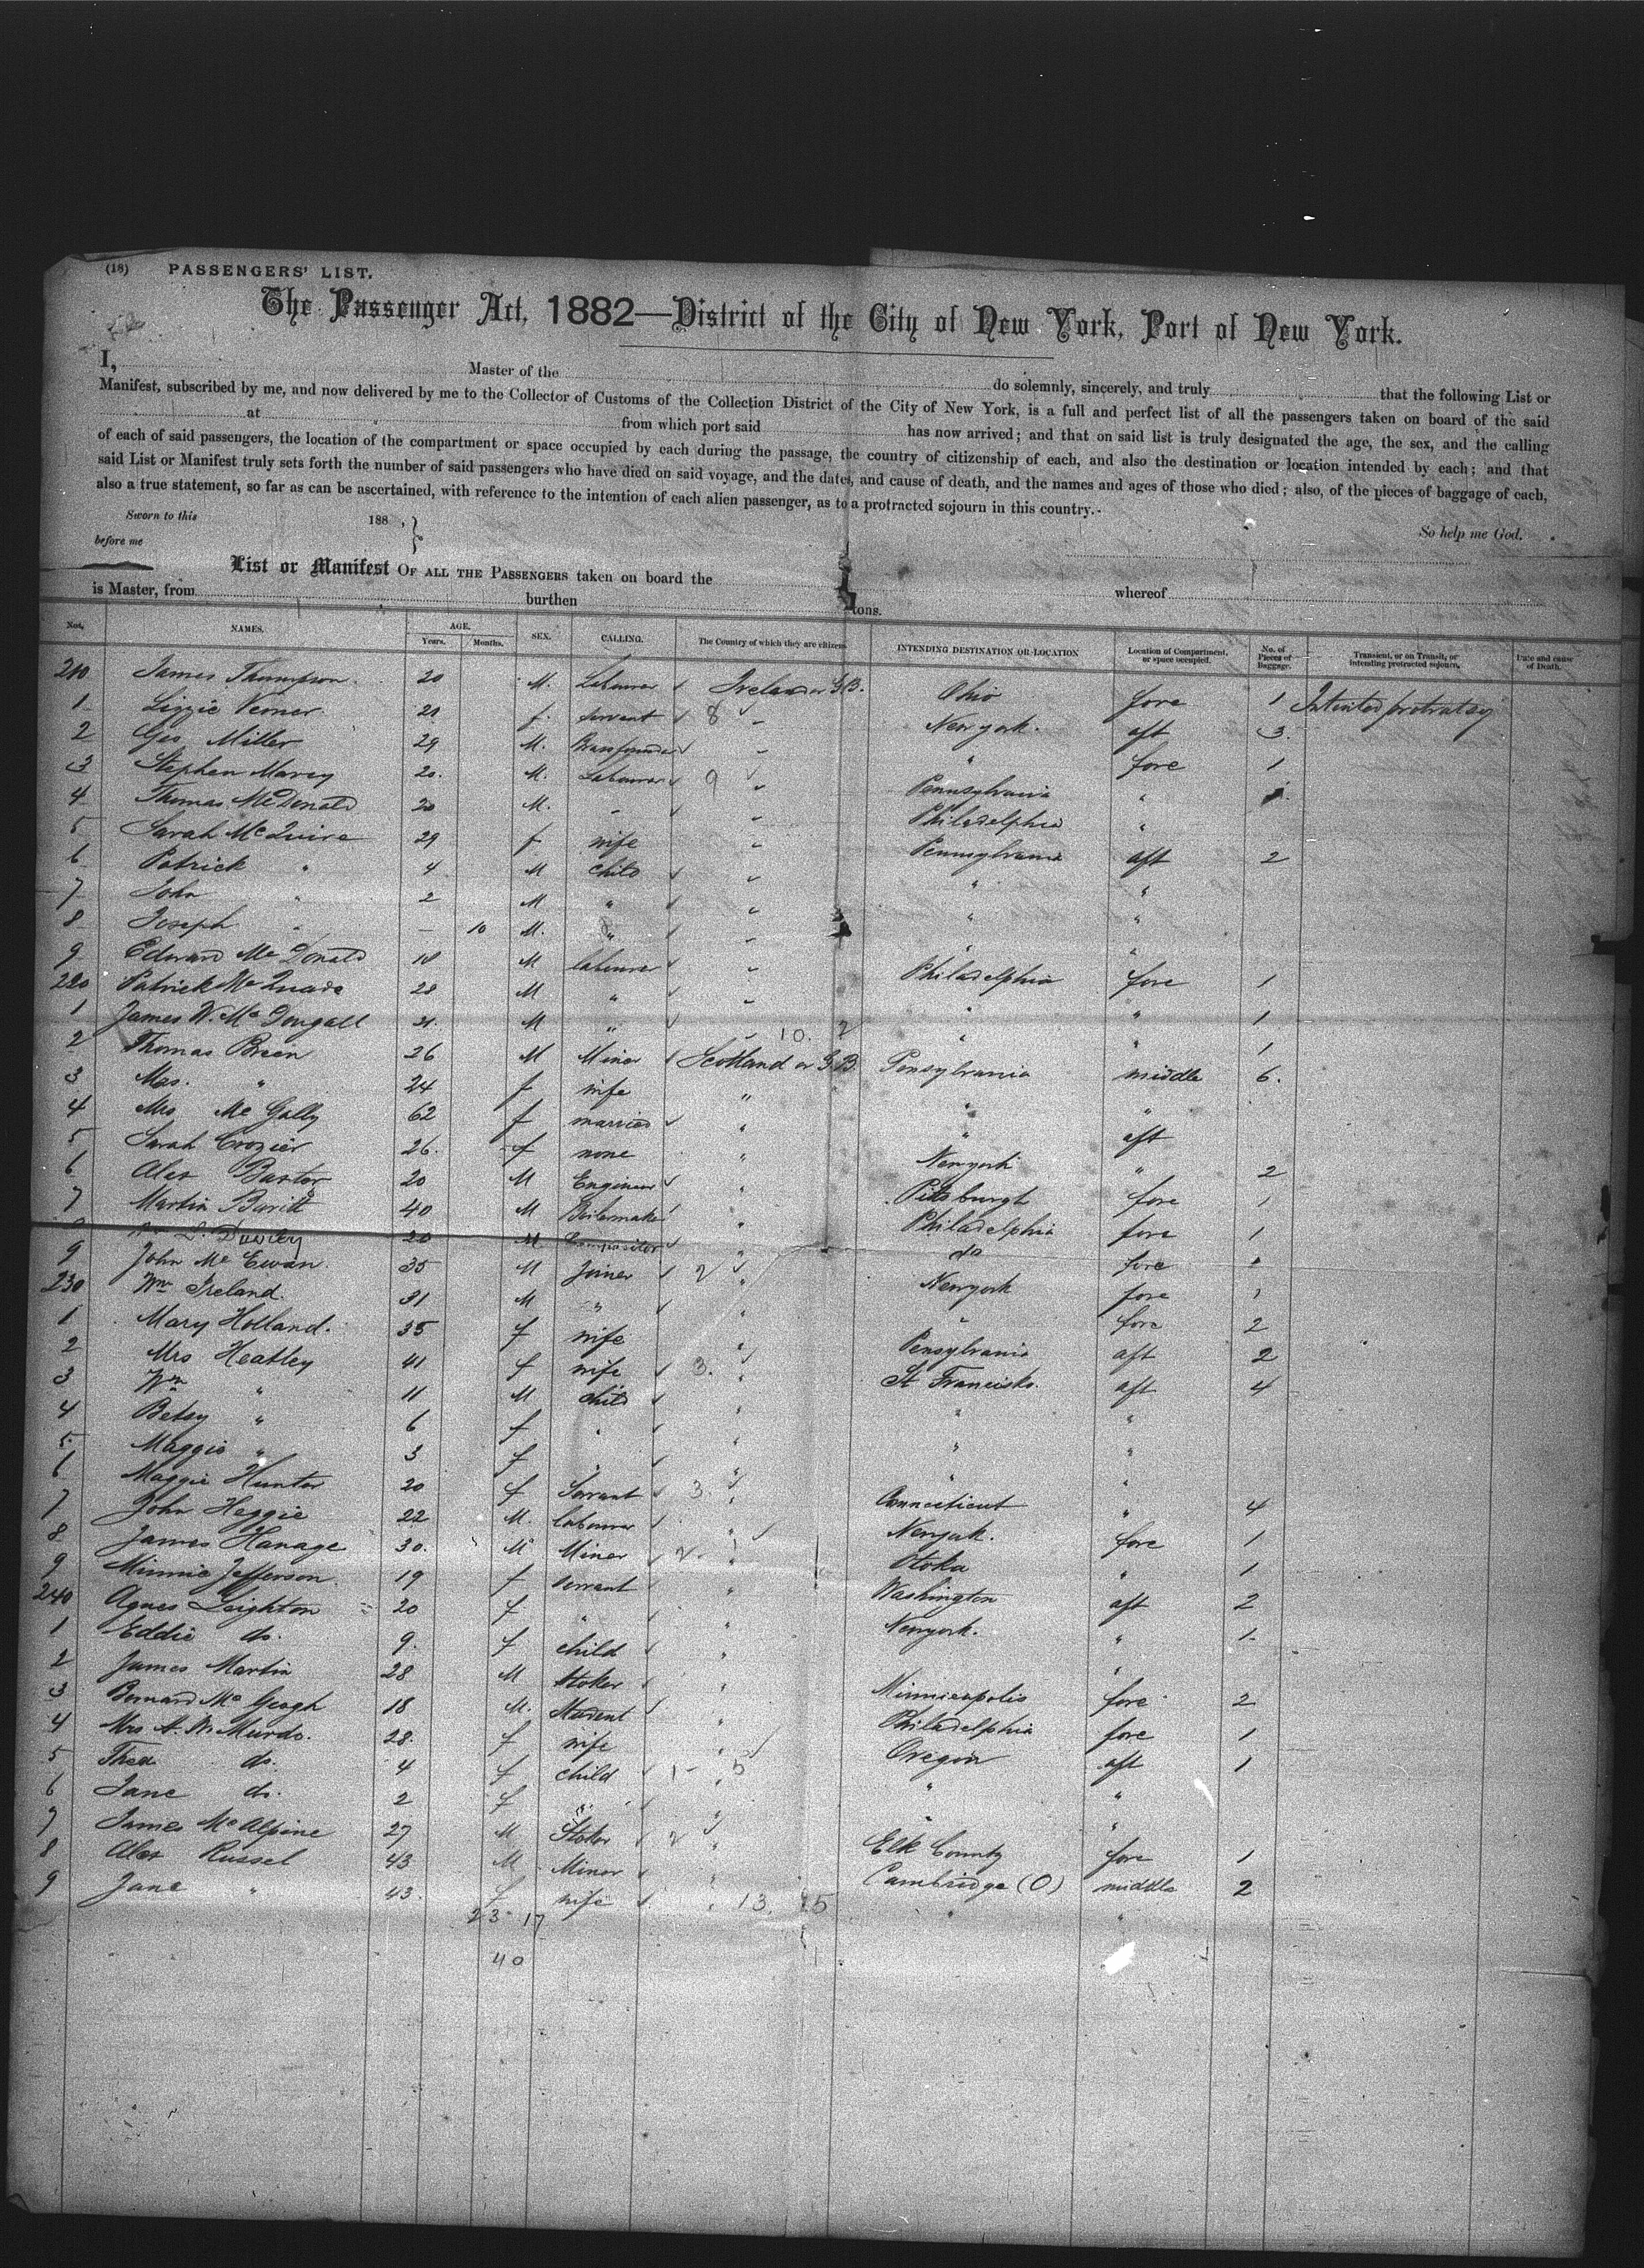 (18) PASSENGERS' LIST.
The Passenger Act, 1882—District of the City of New York, Port of New York.
I, Master of the do solemnly, sincerely, and truly that the following List or
Manifest, subscribed by me, and now delivered by me to the Collector of Customs of the Collection District of the City of New York, is a full and perfect list of all the passengers taken on board of the said
at from which port said has now arrived; and that on said list is truly designated the age, the sex, and the calling
of each of said passengers, the location of the compartment or space occupied by each during the passage, the country of citizenship of each, and also the destination or location intended by each; and that
said List or Manifest truly sets forth the number of said passengers who have died on said voyage, and the dates, and cause of death, and the names and ages of those who died; also, of the pieces of baggage of each,
also a true statement, so far as can be ascertained, with reference to the intention of each alien passenger, as to a protracted sojourn in this country.
Sworn to this 188 ,
before me
So help me God.
List or Manifest OF ALL THE PASSENGERS taken on board the whereof
is Master, from burthen tons.
Nos. NAMES. AGE. Years. Months. SEX. CALLING. The Country of which they are citizens INTENDING DESTINATION OR LOCATION Location of Compartment, or space occupied. No. of Pieces of Baggage. Transient, or on Transit, or intending protracted sojourn. Date and cause of Death.
210 James Thompson 20 M. Labourer Ireland or G.B. Ohio fore 1
1 Lizzie Verner 21 f. servant 8 " New york. aft 3.
2 Geo Miller 29 M. Brassfounder " " fore 1
3 Stephen 20. M. Labourer 9 " Pennsylvania "
4 Thomas McDonald 20 M. " " Philadelphia "
5 Sarah McQuire 29 f wife " Pennsylvania aft 2
6 Patrick " 4 M child " " "
7 John " 2 M " " " "
8 Joseph " — 10 M. " " " "
9 Edward McDonald 18 M labourer " Philadelphia fore 1
220 Patrick McQuade 28 M " " " " 1
1 James W. McDougall 31. M " " 10. 2 " " 1
2 Thomas Breen 26 M Miner Scotland or G.B. Pensylvania middle 6.
3 Mrs. " 24 f wife " " "
4 Mrs McGally 62 f married " " aft
5 Sarah Crozier 26. f none " Newyork " 2
6 Alex Baxter 20 M Engineer " Pittsburgh fore 1
7 Martin 40 M Boilermaker " Philadelphia fore 1
20 M Compositor " do fore
9 John McEwan 35 M Joiner 2 " Newyork fore 1
230 Wm Ireland. 31 M " " " fore 2
1 Mary Holland. 35 f wife " Pensylvania aft 2
2 Mrs Heatley 41 f wife 3. " St Francisko. aft 4
3 Wm " 11 M child " " "
4 Betsy " 6 f " " " "
5 Maggie " 3 f " " " "
6 Maggie Hunter 20 f Servant 3. " Connecticut " 4
7 John Heggie 22 M. labourer " Newyork. fore 1
8 James Hanage 30. M Miner 2. " Otoka " 1
9 Minnie Jefferson 19 f servant " Washington aft 2
240 Agnes Leighton 20 f " " Newyork. " 1
1 Eddie do. 9. f child " "
2 James Martin 28 M Stoker " Minnieapolis fore 2
3 Bernard McGeogh 18 M. Student " Philadelphia fore 1
4 Mrs A. McMurdo. 28. f wife " Oregon aft 1
5 do. 4 f child 1 5 " " "
6 Jane do. 2 f " " " "
7 James McAlpine 27 M Stoker 2 " Elk County fore 1
8 Alex Russel 43 M Miner " Cambridge (O) middle 2
9 Jane " 43. f wife " 13. 15 " "
23 17
40